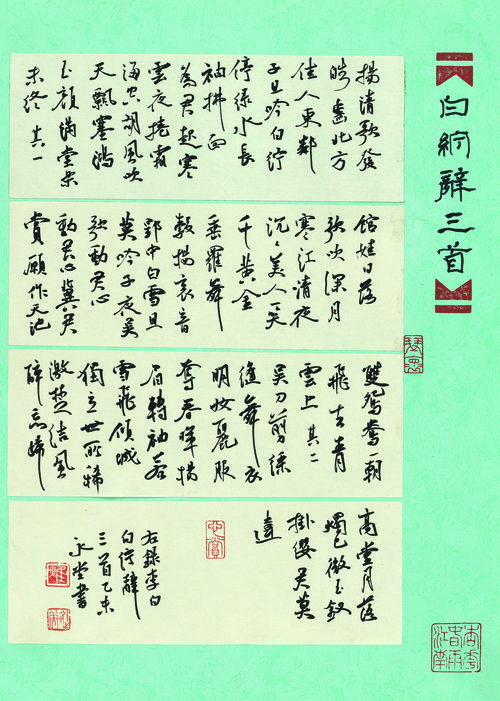 白紵辭三首
揚清歌發
皓齒北方
佳人東鄰
子旦吟白紵
停綠水長
袖拂面
為君起寒
雲夜捲霜
海空胡風吹
天飄塞鴻
玉顏滿堂樂
未終 其一
館娃日落
歌吹深月
寒江清夜
沉々美人一笑
千黃金
垂羅舞
縠揚哀音
郢中白雪且
莫吟子夜吳
歌動君心
動君心冀君
賞願作天池
雙鴛鴦一朝
飛去青
雲上 其二
吳刀剪綵
縫舞衣
明妝麗服
奪春暉揚
眉轉袖若
雪飛傾城
獨立世所稀
激楚結風
醉忘歸
高堂月落
燭已微玉釵
掛纓君莫
違
右錄李白
白紵辭
三首乙未
永堂書
心賞
杏花春雨江南